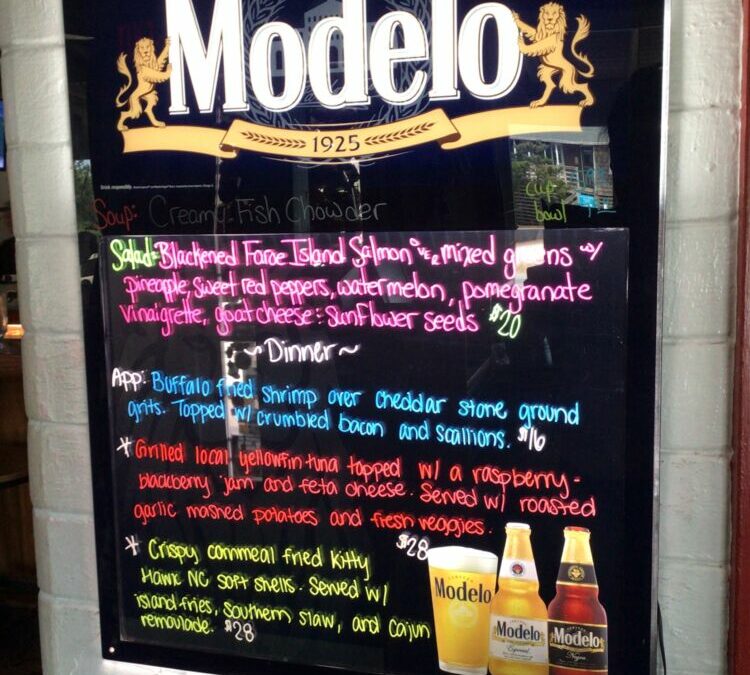 Modelo
1925
Soup: Creamy Fish Chowder
cup
bowl
Salad: Blackened Faroe Island Salmon over mixed greens w/
pineapple, sweet red peppers, watermelon, pomegranate
vinaigrette, goat cheese : sunflower seeds $20
~ Dinner ~
App: Buffalo fried shrimp over cheddar stone ground
grits. Topped w/ crumbled bacon and scallions. $16
* Grilled local yellowfin tuna topped w/ a raspberry-
blackberry jam and feta cheese. Served w/ roasted
garlic mashed potatoes and fresh veggies.
$28
* Crispy cornmeal fried Kitty
Hawk NC soft shells. Served w/
island fries, southern slaw, and Cajun
remoulade. $28
Modelo
Modelo
Especial
Modelo
Negra